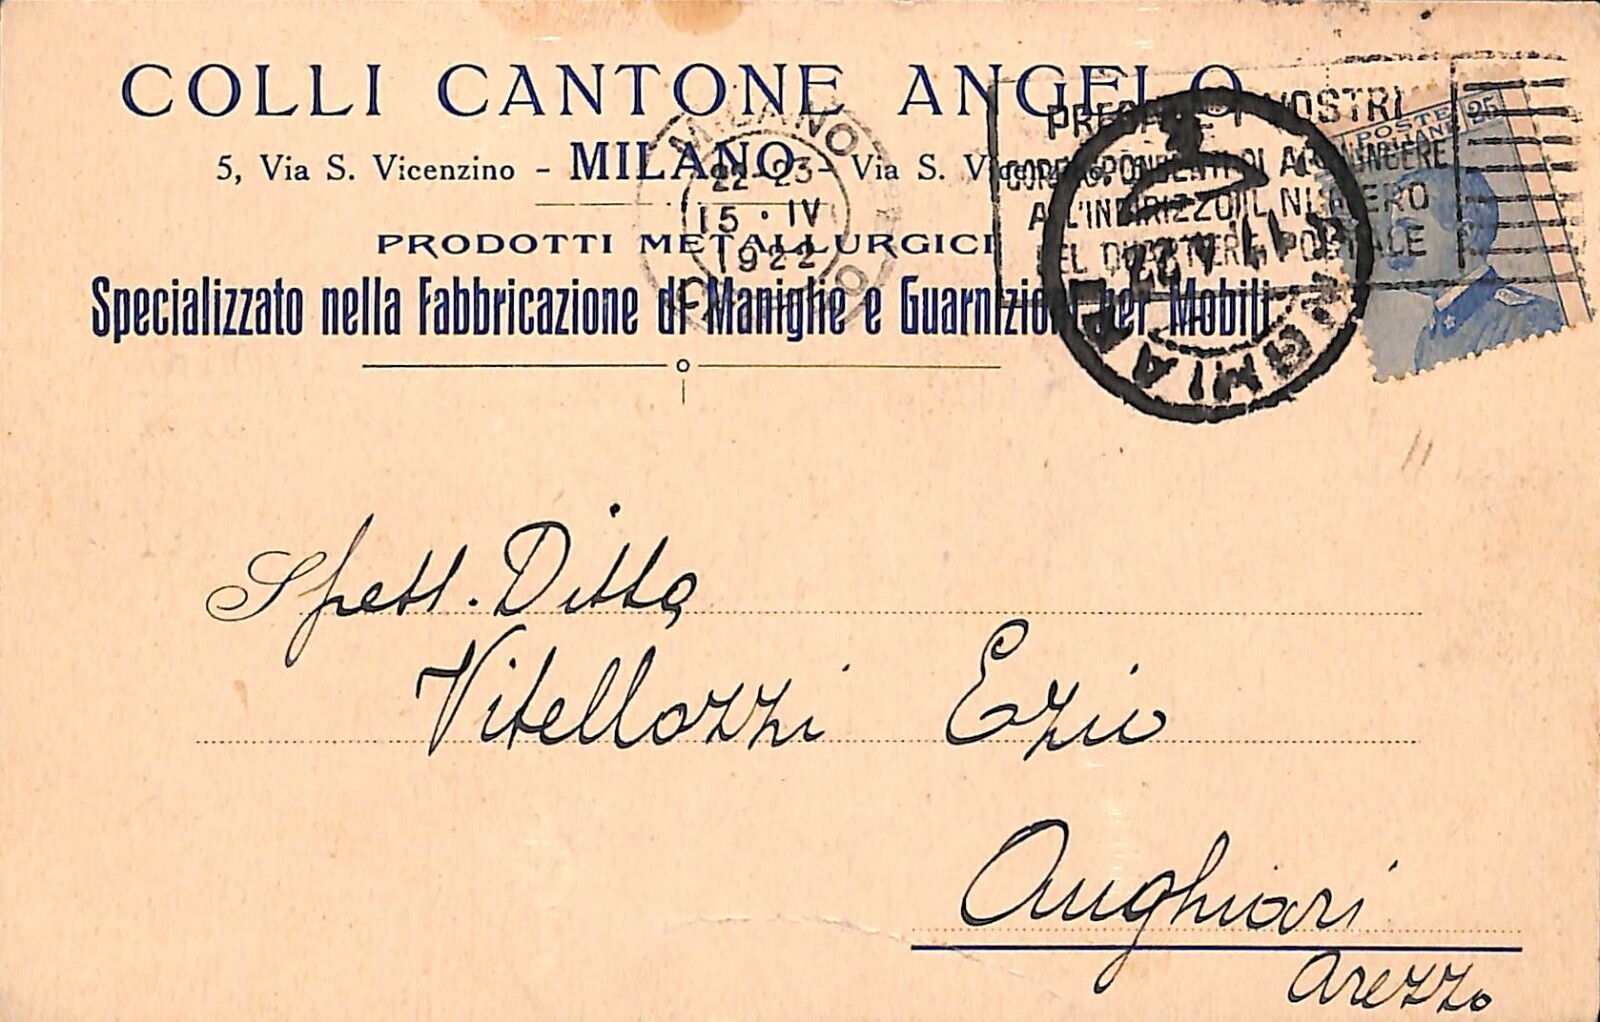 COLLI CANTONE ANGELO
5, Via S. Vicenzino - MILANO - Via S.
PRODOTTI METALLURGICI
Specializzato nella Fabbricazione di Maniglie e Guarnizioni per Mobili
MILANO
22-23
15 · IV
1922
I VOSTRI
CORRISPONDENTI DI AGGIUNGERE
ALL'INDIRIZZO IL NUMERO
DEL QUARTIERE POSTALE
POSTE
25
Spett. Ditta
Vitellozzi Ezio
Anghiari
Arezzo